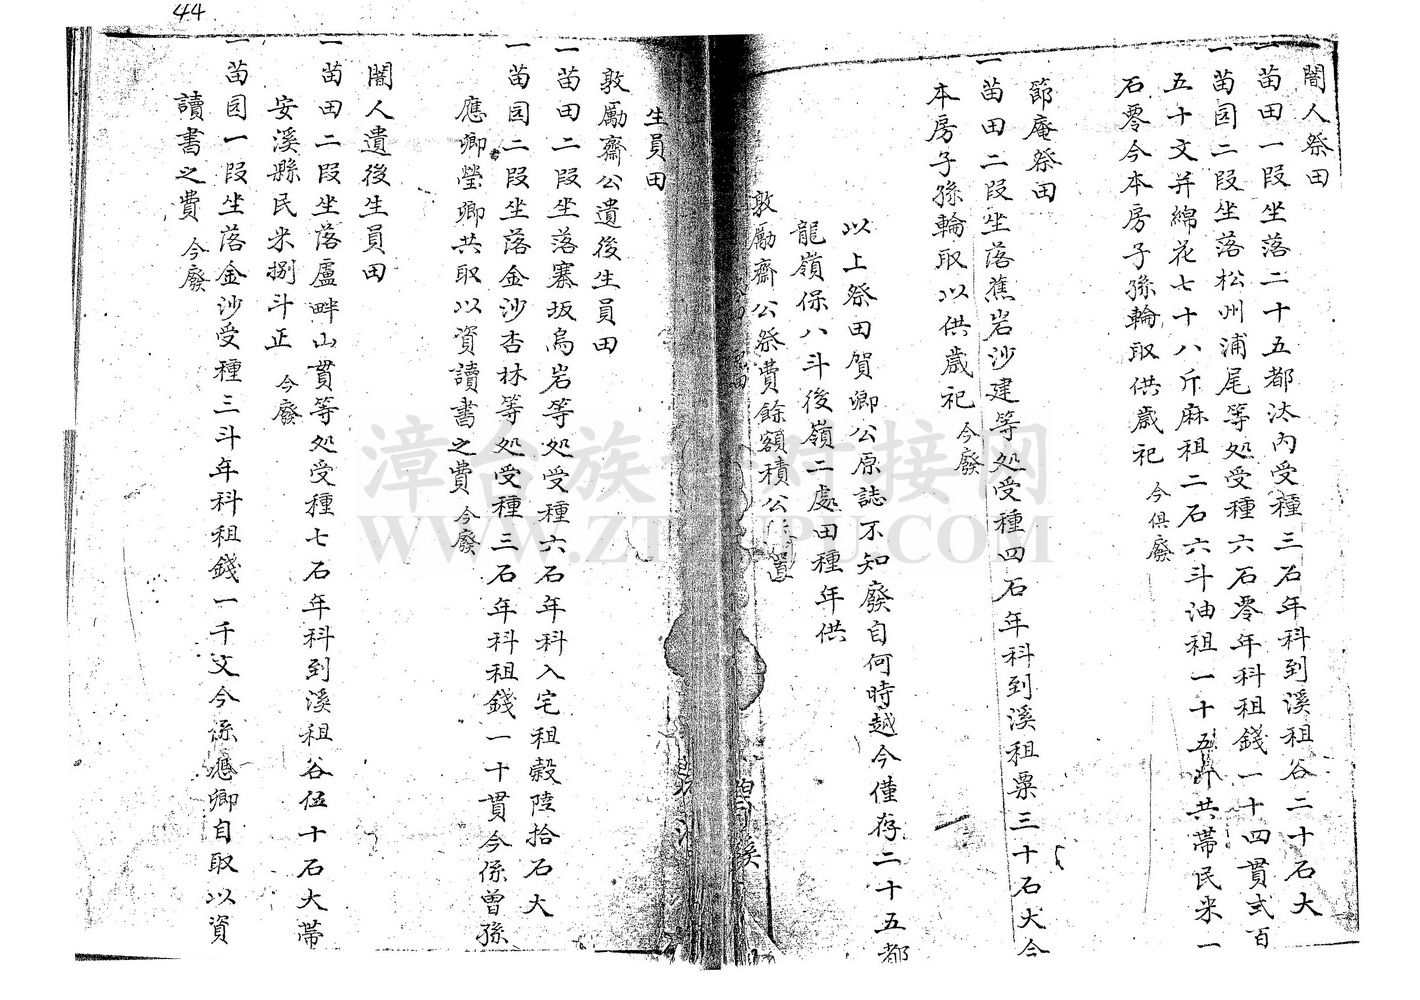 44
闇人祭田
一苗田一段坐落二十五都汰內受種三石年科到溪租谷二十石大
一苗园二段坐落松州浦尾等处受種六石零年科租錢一十四貫弍百
五十文并綿花七十八斤麻租二石六斗油租一十五斤共帶民米一
石零今本房子孫輪取供歲祀 今俱廢
節庵祭田
一苗田二段坐落蕉岩沙建等处受種四石年科到溪租粟三十石大今
本房子孫輪取以供歲祀 今廢
以上祭田賀卿公原誌不知廢自何時越今僅存二十五都
龍嶺保八斗後嶺二處田種年供
敦勵齋公祭費餘額積公置
生員田
敦勵齋公遺後生員田
一苗田二段坐落寨坂烏岩等处受種六石年科入宅租穀陸拾石大
一苗园二段坐落金沙杏林等处受種三石年科租錢一十貫今係曾孫
應卿瑩卿共取以資讀書之費 今廢
闇人遺後生員田
一苗田二段坐落盧畔山貫等处受種七石年科到溪租谷伍十石大帶
安溪縣民米捌斗正 今廢
一苗园一段坐落金沙受種三斗年科租錢一千文今係應卿自取以資
讀書之費 今廢
漳台族谱对接网
WWW.ZTZUPU.COM